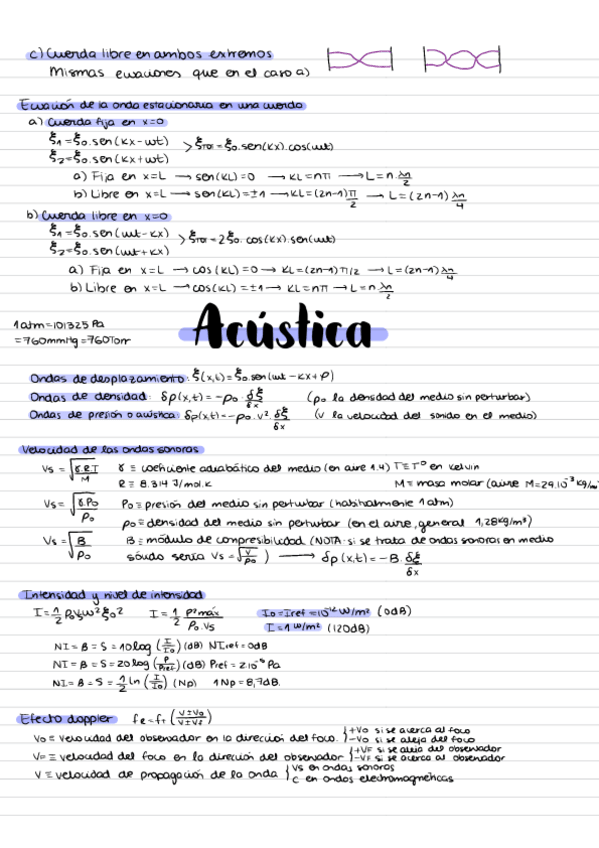 c) Cuerda libre en ambos extremos
Mismas ecuaciones que en el caso a)
Ecuación de la onda estacionaria en una cuerda
a) Cuerda fija en x=0
ξ1=ξ0.sen(kx-wt)
ξ2=ξ0.sen(kx+wt)
>ξTOT=ξ0.sen(kx).cos(wt)
a) Fija en x=L → sen(kL)=0 → kL=nπ → L=n.λn/2
b) Libre en x=L → sen(kL)=±1 → kL=(2n-1)π/2 → L=(2n-1)λn/4
b) Cuerda libre en x=0
ξ1=ξ0.sen(wt-kx)
ξ2=ξ0.sen(wt+kx)
>ξTOT=2ξ0.cos(kx).sen(wt)
a) Fija en x=L → cos(kL)=0 → kL=(2n-1)π/2 → L=(2n-1)λn/4
b) Libre en x=L → cos(kL)=±1 → kL=nπ → L=n λn/2
1atm=101325 Pa
=760mmHg=760Torr
Acústica
Ondas de desplazamiento: ξ(x,t)=ξ0.sen(wt-kx+φ)
Ondas de densidad: δρ(x,t)=-ρ0.δξ/δx (ρ0 la densidad del medio sin perturbar)
Ondas de presión o acústica: δp(x,t)=-ρ0.v².δξ/δx (v la velocidad del sonido en el medio)
Velocidad de las ondas sonoras
Vs=√(γRT/M) γ≡coeficiente adiabático del medio (en aire 1.4) T≡Tº en kelvin
R≡8.314 J/mol.K M≡masa molar (aire M=29.10⁻³ kg/m
Vs=√(γP0/ρ0) P0≡presión del medio sin perturbar (habitualmente 1 atm)
ρ0≡densidad del medio sin perturbar (en el aire, general 1,28kg/m³)
Vs=√(B/ρ0) B≡módulo de compresibilidad (NOTA: si se trata de ondas sonoras en medio
sólido sería Vs=√(Y/ρ0)) → δp(x,t)=-B.δξ/δx
Intensidad y nivel de intensidad
I=1/2 ρ0 vs w² ξ0² I=1/2 p²máx/ρ0.vs I0=Iref=10⁻¹² W/m² (0dB)
I=1 W/m² (120dB)
NI=β=S=10log(I/I0) (dB) NIref=0dB
NI=β=S=20log(P/Pref) (dB) Pref=2.10⁻⁵ Pa
NI=β=S=1/2 ln(I/I0) (Np) 1Np=8,7dB.
Efecto doppler fR=fF(V±V0/V±VF)
V0≡velocidad del observador en la dirección del foco {+V0 si se acerca al foco
-V0 si se aleja del foco
VF≡velocidad del foco en la dirección del observador {+VF si se aleja del observador
-VF si se acerca al observador
V≡velocidad de propagación de la onda {Vs en ondas sonoras
c en ondas electromagnéticas